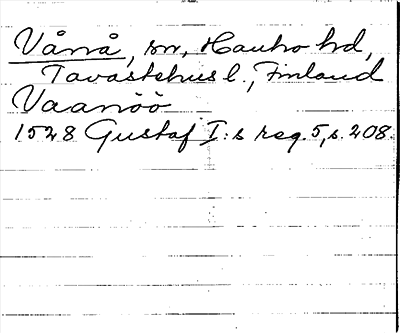 Vånå, sn, Hauho hd,
Tavastehus l., Finland
Vaanöö
1528 Gustaf I:s reg. 5, s. 208.